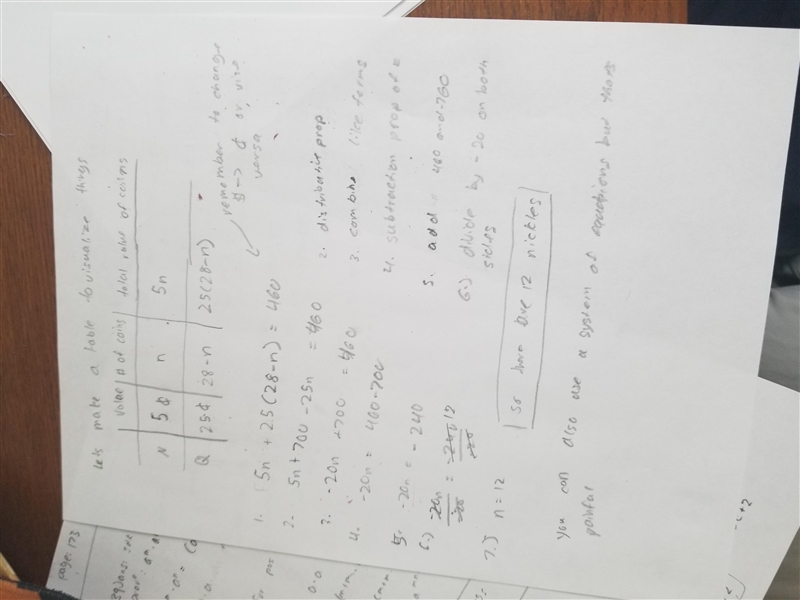 Lets make a table to visualize things
value # of coins total value of coins
N 5¢ n 5n
Q 25¢ 28-n 25(28-n)
remember to change
$ -> ¢ or vise
versa
1. 5n + 25(28-n) = 460
2. 5n + 700 - 25n = 460 2. distributive prop
3. -20n + 700 = 460 3. combine like terms
4. -20n = 460-700 4. subtraction prop of =
5. -20n = -240 5. add 460 and -700
6.) -20n = -240 12 6.) divide by -20 on both
-20 -20 sides
7.) n = 12
so there are 12 nickles
you can also use a system of equations but thats
painful
page: 173